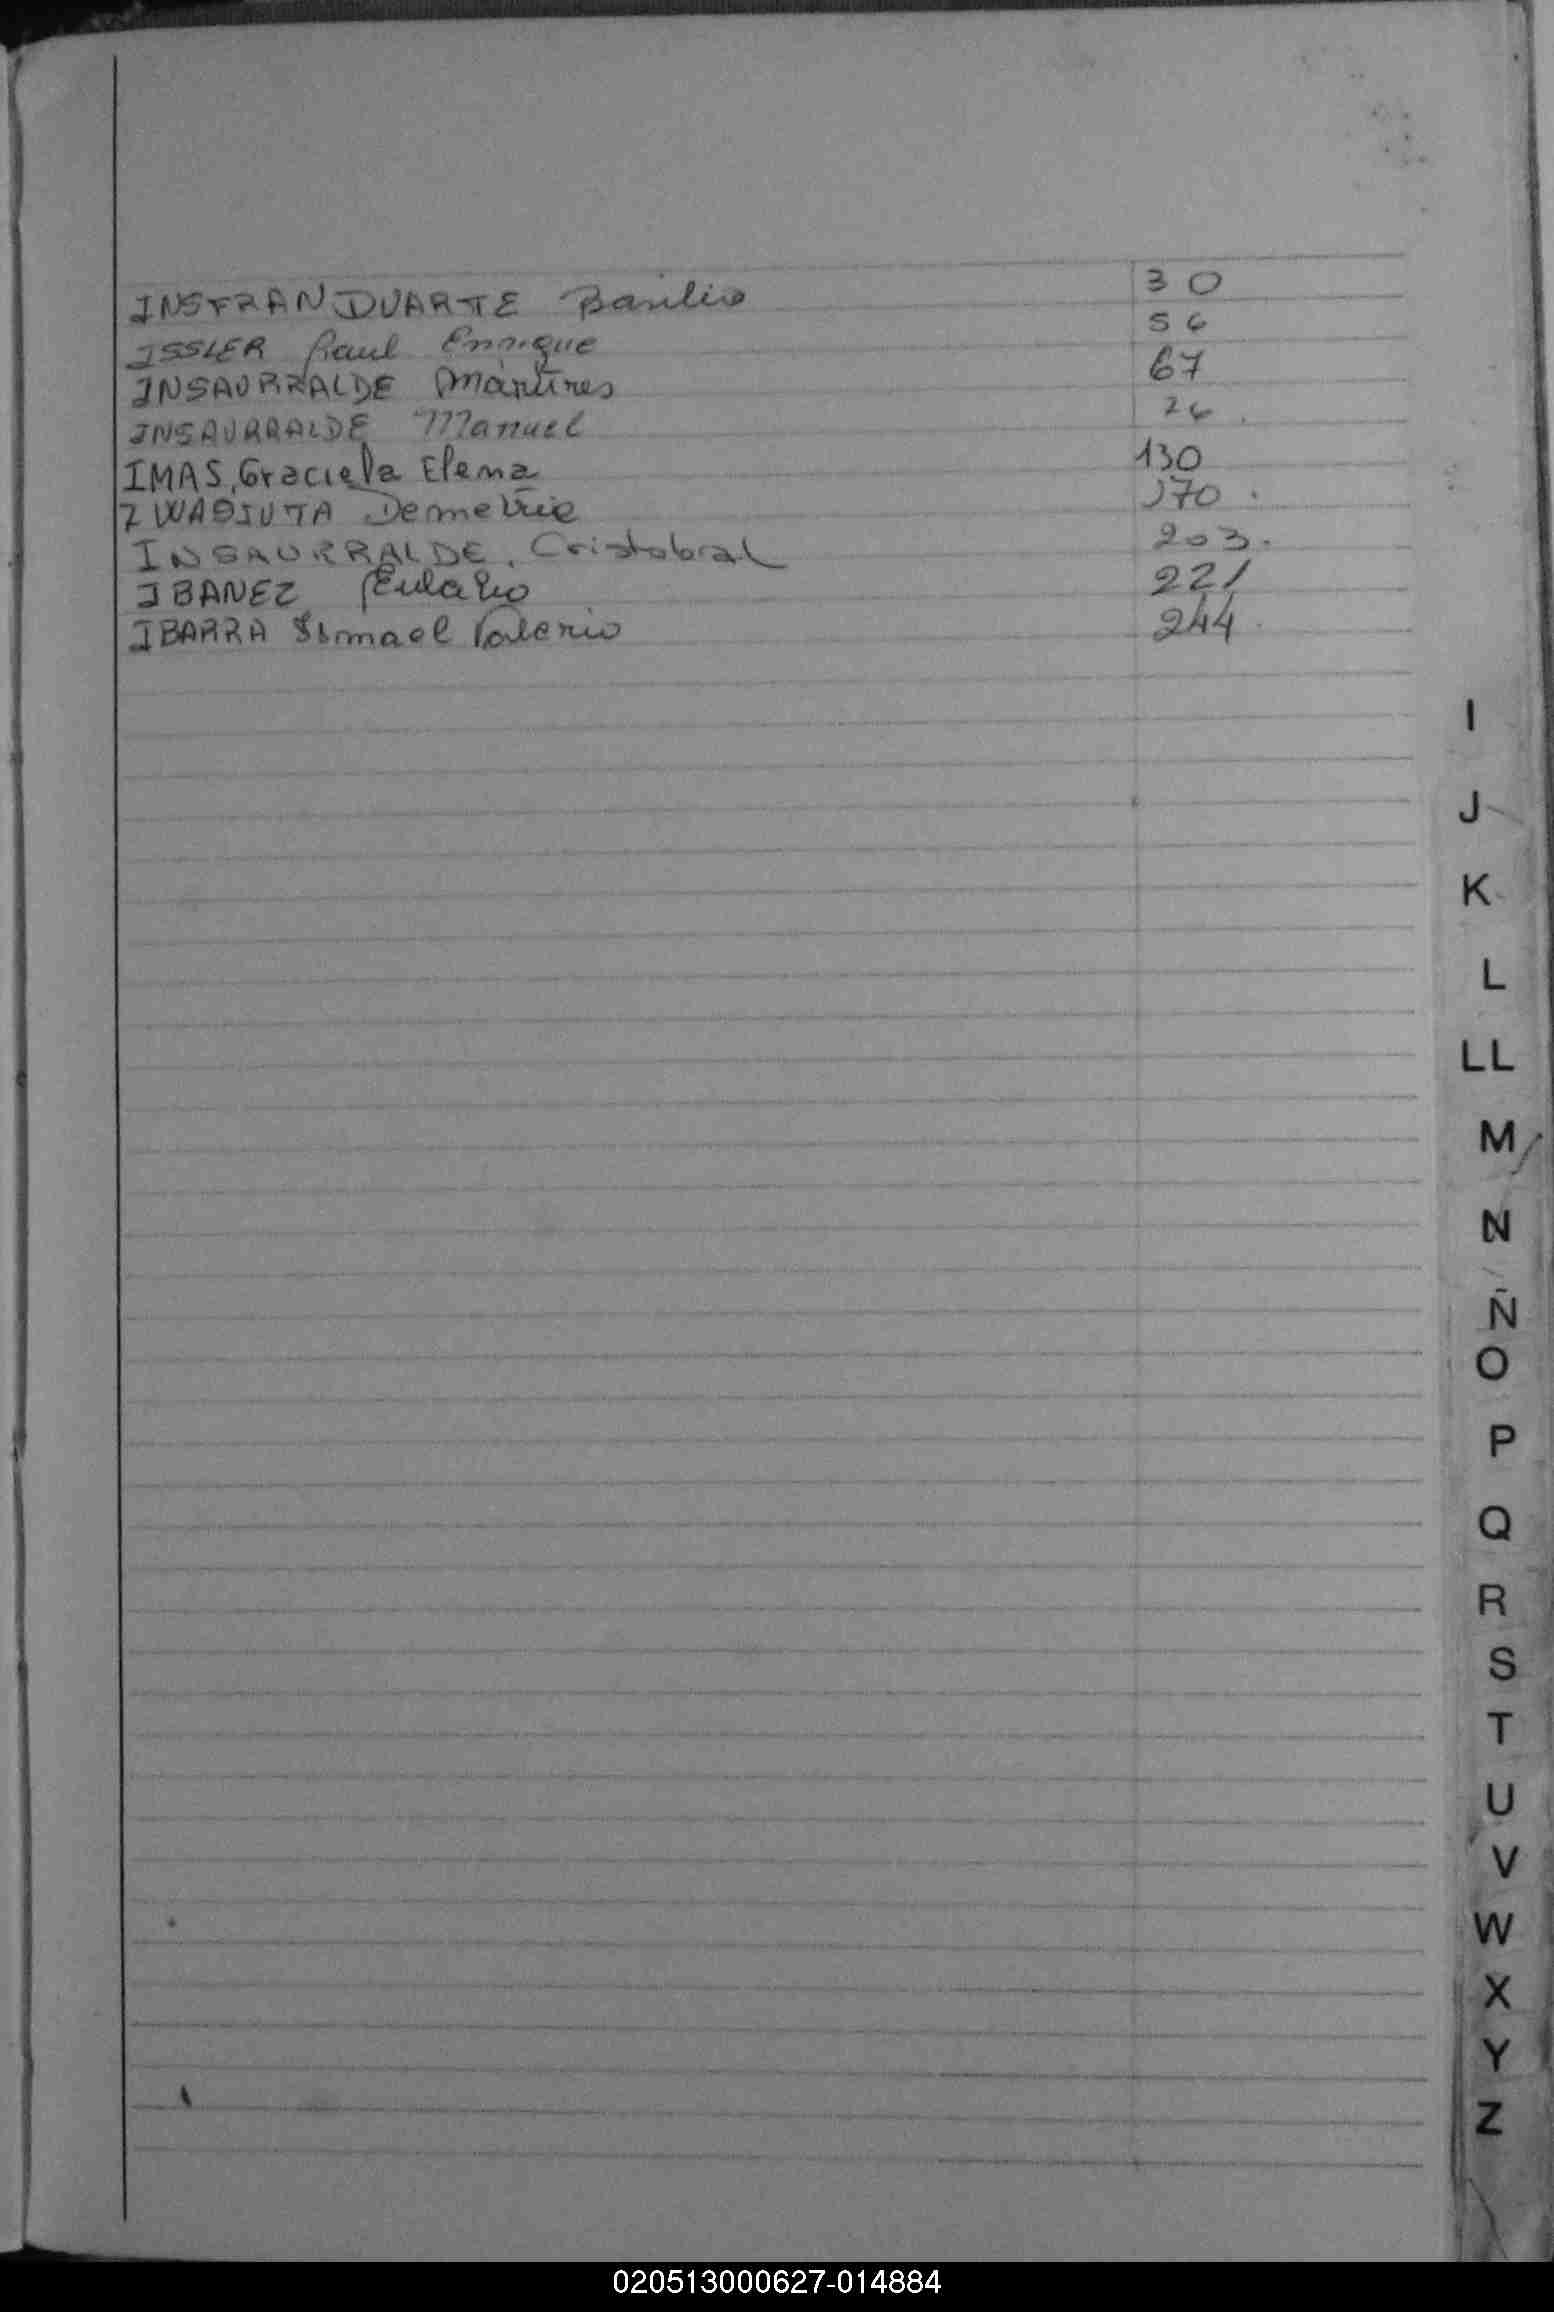 INSFRAN DUARTE Basilio 30
ISSLER Raul Enrique 56
INSAURRALDE Martires 67
INSAURRALDE Manuel 76
IMAS, Graciela Elena 130
IWASIUTA Demetrio 170
INSAURRALDE, Cristobal 203
IBANEZ Eulalio 221
IBARRA Ismael Valerio 244
I
J
K
L
LL
M
N
Ñ
O
P
Q
R
S
T
U
V
W
X
Y
Z
020513000627-014884